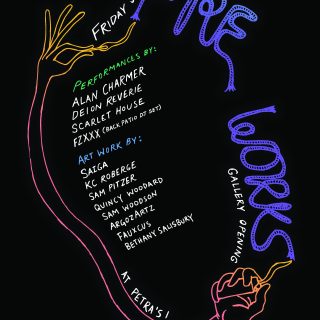 FRIDAY
FIRE
WORKS
GALLERY OPENING
PERFORMANCES BY:
ALAN CHARMER
DEION REVERIE
SCARLET HOUSE
FZXXX (BACK PATIO DJ SET)
ART WORK BY:
SAIGA
KC ROBERGE
SAM PITZER
QUINCY WOODARD
SAM WOODSON
ARGOZARTZ
FAUXCUS
BETHANY SALISBURY
AT PETRA'S!